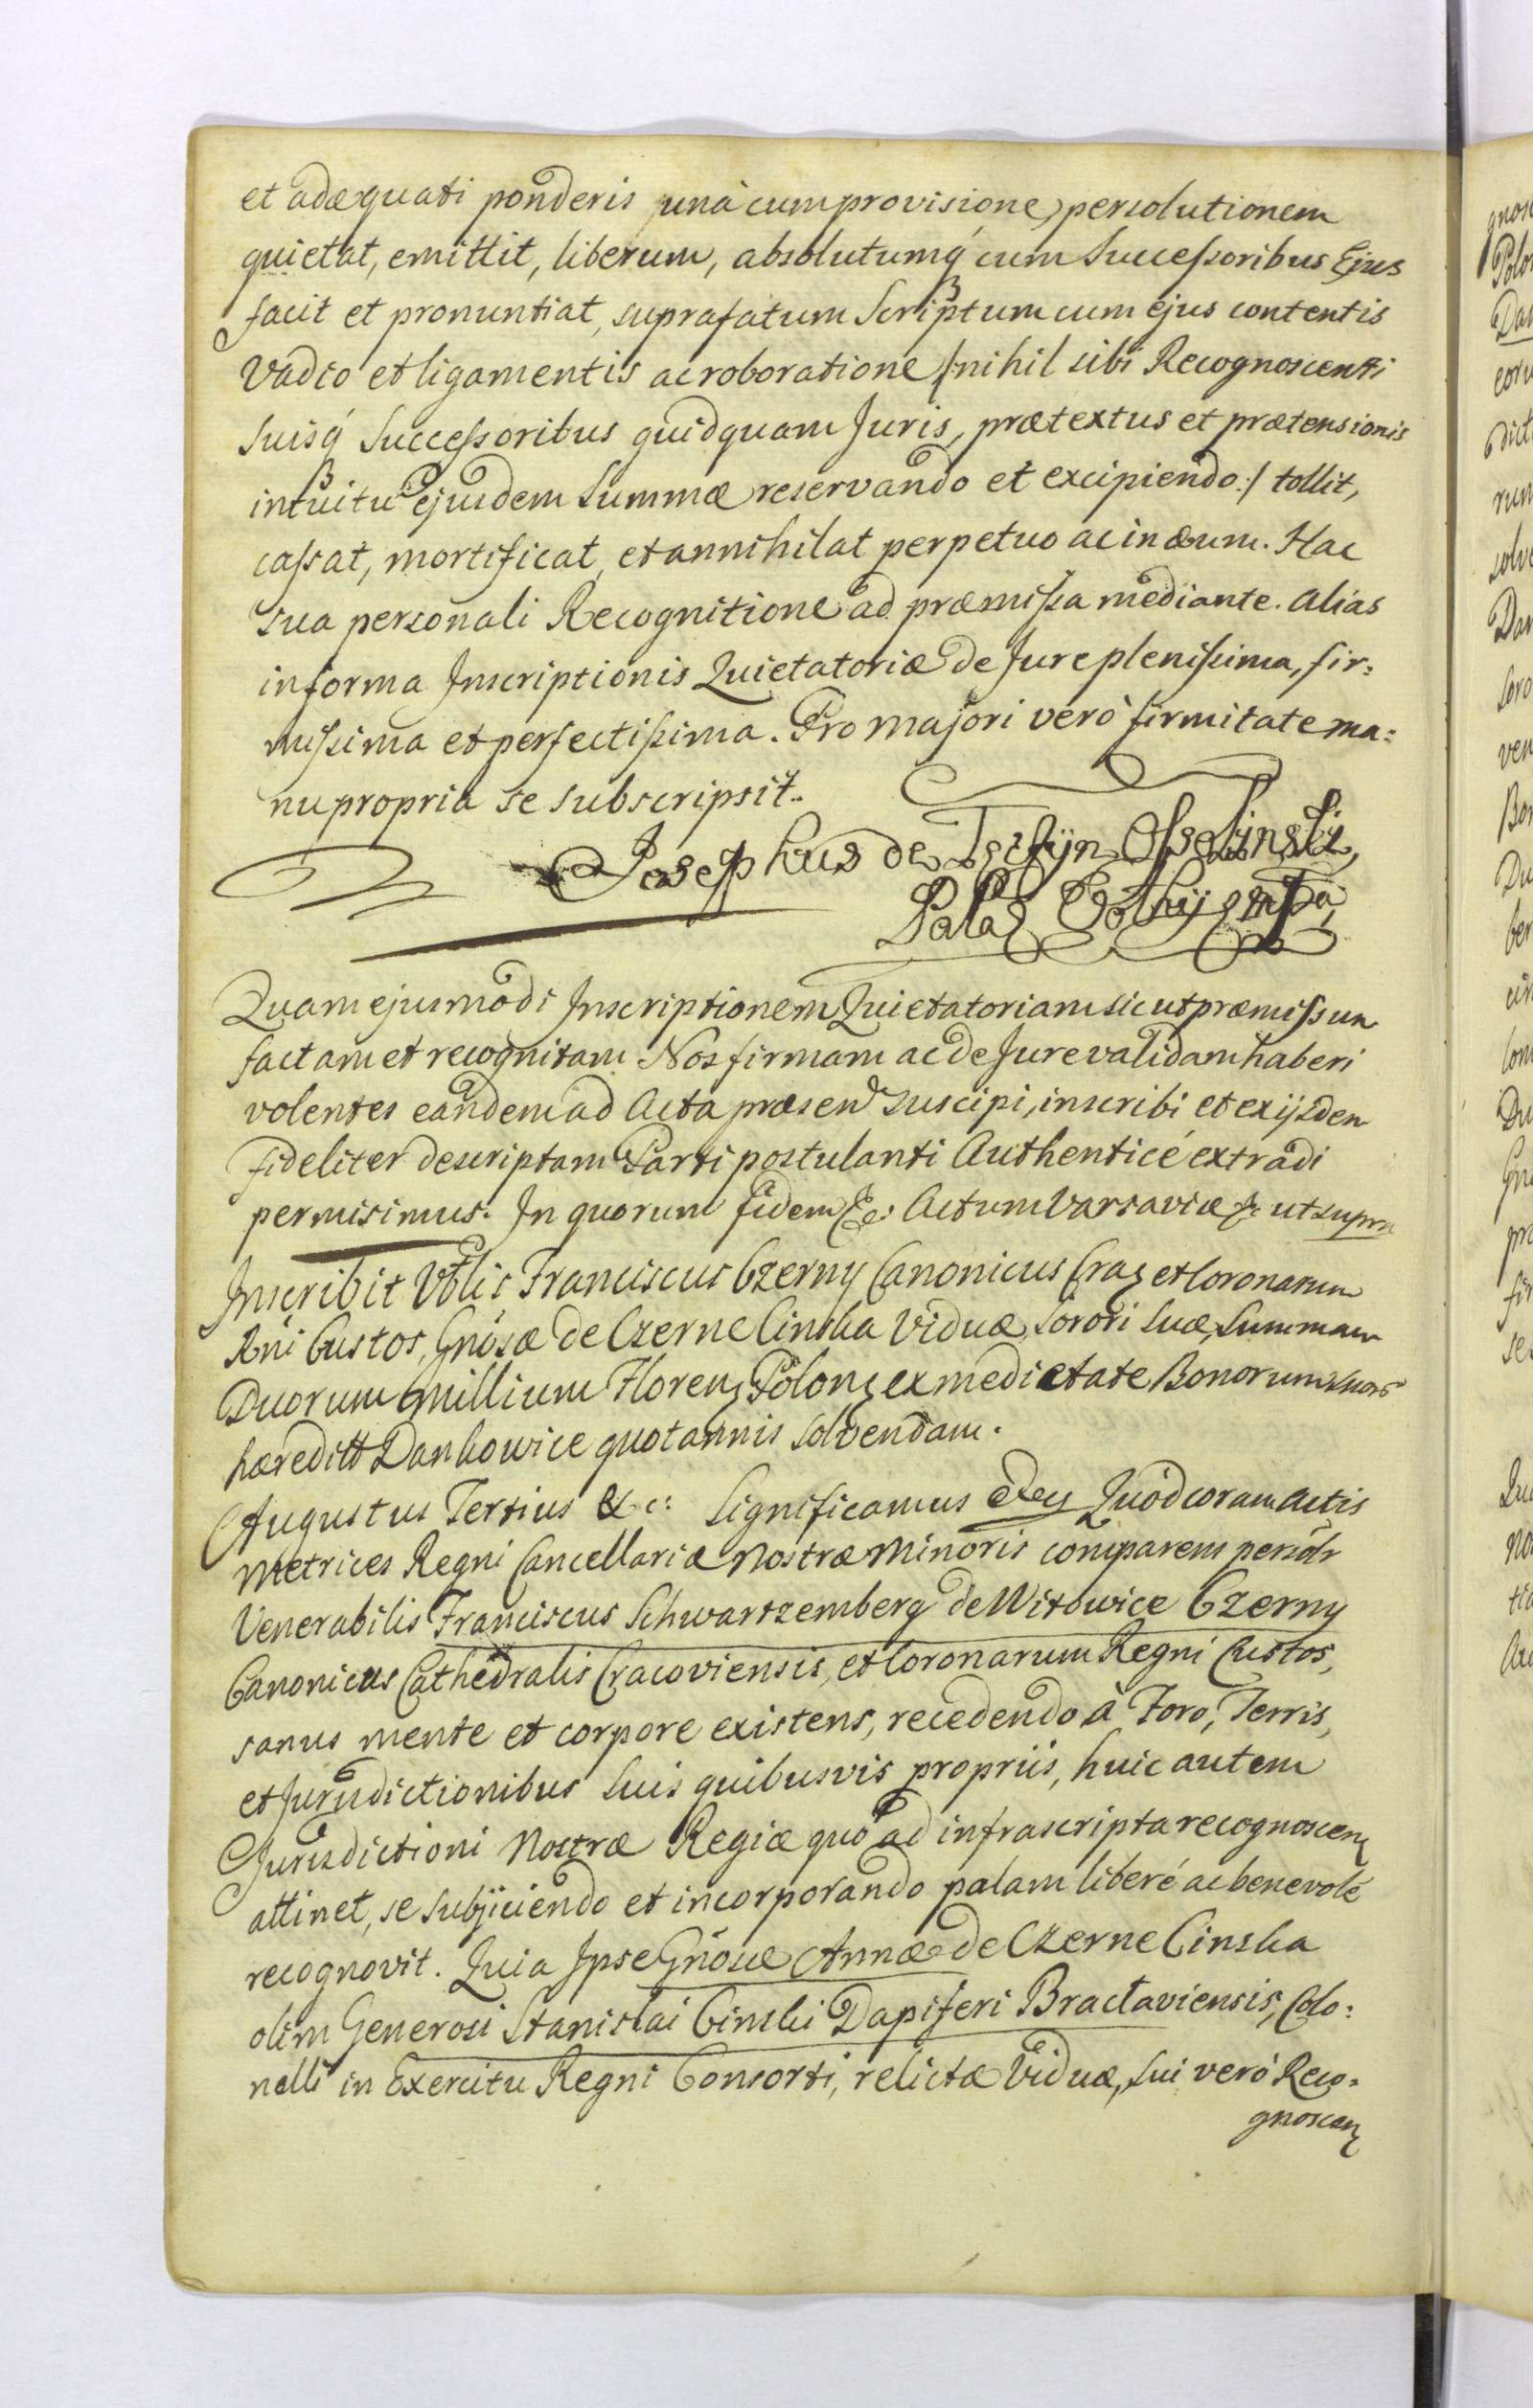 et adæquati ponderis unà cum provisione) persolutionem
quietat, emittit, liberum, absolutumq́ cum Successoribus Ejus
facit et pronuntiat, suprafatum Scriptum cum ejus contentis
Vadio et ligamentis ac roboratione /:nihil sibi Recognoscenti
Suisq́ Successoribus quidquam Juris, prætextus et prætensionis
intuitu ejusdem Summæ reservando et excipiendo:/ tollit,
cassat, mortificat, et annihilat perpetuo ac in ævum. Hac
sua personali Recognitione ad præmissa mediante. Alias
in forma Inscriptionis Quietatoriæ de Jure plenissima, fir:
missima et perfectissima. Pro majori verò firmitate ma:
nu propria se subscripsit.
Josephus de Tęczyn Ossolinski,
Pala
Quam ejusmodi Inscriptionem Quietatoriam sicut præmissum
factam et recognitam Nos firmam ac de Jure validam haberi
volentes eandem ad Acta præsen suscipi, inscribi et ex ijsdem
fideliter descriptam Parti postulanti Authenticé extradi
permisimus. In quorum fidem &c: Actum Varsaviæ &c ut supra
Inscribit Vblis Franciscus Czerny Canonicus Craꝫ et Coronarum
Rni Custos, Gnosæ de Czerne Cinska Viduæ, Sorori Suæ, Summam
Duorum Millium Florenꝫ Polonꝫ ex medietate Bonorum suor
hæreditt Dankowice quotannis solvendam.
Augustus Tertius &c: Significamus Quod coram Actis
Metrices Regni Cancellariæ Nostræ Minoris comparens persolr
Venerabilis Franciscus Schwartzemberg de Witowice Czerny
Canonicus Cathedralis Cracoviensis, et Coronarum Regni Custos,
sanus mente et corpore existens, recedendo à Foro, Terris,
et Jurisdictionibus Suis quibusvis propriis, huic autem
Jurisdictioni Nostræ Regiæ quo ad infrascripta recognoscenꝫ
attinet, se subjiciendo et incorporando palam liberé ac benevolé
recognovit. Quia Ipse Gnosæ Annæ de Czerne Cinska
olim Generosi Stanislai Cinski Dapiferi Braclaviensis, Colo:
nelli in Exercitu Regni Consorti, relictæ Viduæ, Sui verò Reco:
gnoscenꝫ